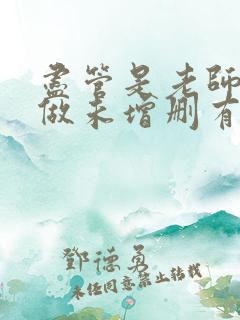 盡管是老師
做未增刪有
鄧德勇
未经同意禁止转载